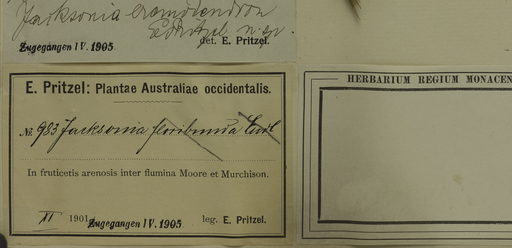 Jacksonia eremodendron
E. Pritzel n. sp.
Zugegangen IV. 1905 det. E. Pritzel.
E. Pritzel: Plantae Australiae occidentalis.
No. 983 Jacksonia floribunda Endl
In fruticetis arenosis inter flumina Moore et Murchison.
XI 1901 Zugegangen IV. 1905 leg. E. Pritzel.
HERBARIUM REGIUM MONACEN